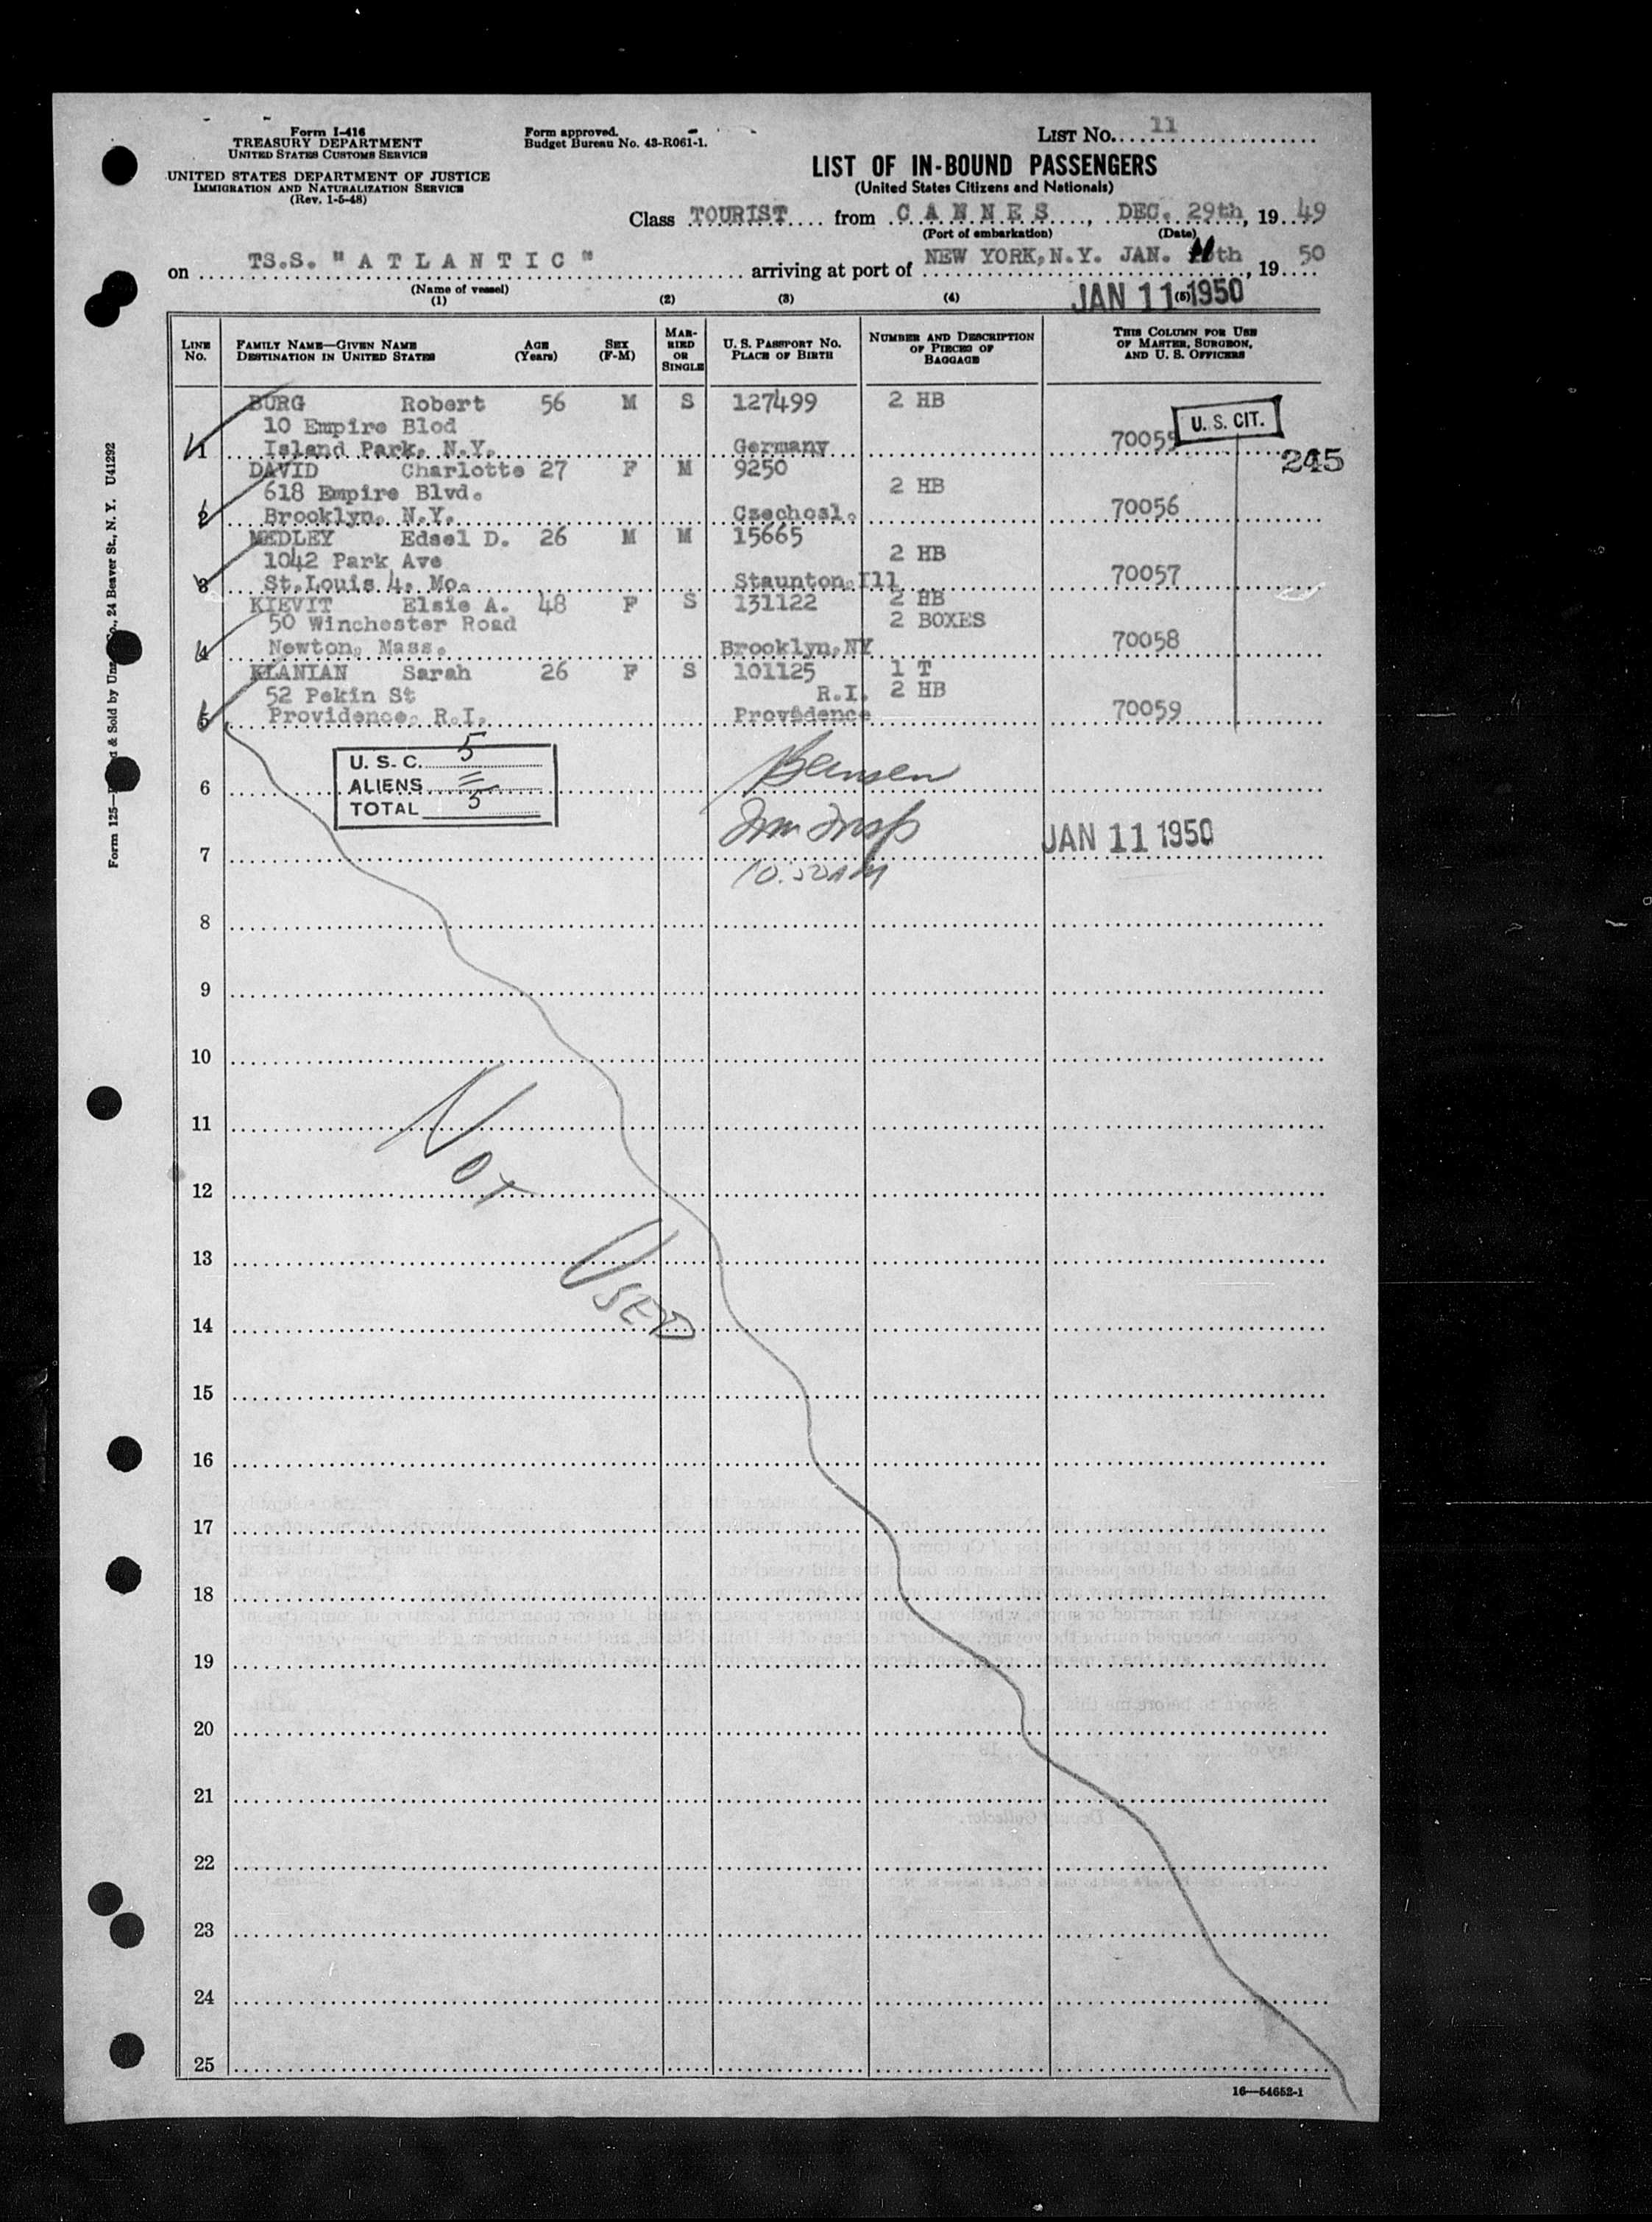 Form I-416
TREASURY DEPARTMENT
UNITED STATES CUSTOMS SERVICE
UNITED STATES DEPARTMENT OF JUSTICE
IMMIGRATION AND NATURALIZATION SERVICE
(Rev. 1-5-48)
Form approved.
Budget Bureau No. 43-R061-1.
LIST No. 11
LIST OF IN-BOUND PASSENGERS
(United States Citizens and Nationals)
Class TOURIST from C A N N E S, DEC. 29th, 19 49
(Port of embarkation) (Date)
on TS.S. "A T L A N T I C" arriving at port of NEW YORK, N.Y. JAN. 11th, 19 50
(Name of vessel)
(1) (2) (3) (4) (5)
JAN 11 1950
LINE No. FAMILY NAME—GIVEN NAME DESTINATION IN UNITED STATES AGE (Years) SEX (F-M) MARRIED OR SINGLE U. S. PASSPORT No. PLACE OF BIRTH NUMBER AND DESCRIPTION OF PIECES OF BAGGAGE THIS COLUMN FOR USE OF MASTER, SURGEON, AND U. S. OFFICERS
BURG Robert 56 M S 127499 2 HB
10 Empire Blod
1 Island Park, N.Y. Germany 70055 U. S. CIT.
245
DAVID Charlotte 27 F M 9250
618 Empire Blvd. 2 HB
2 Brooklyn, N.Y. Czechosl. 70056
MEDLEY Edsel D. 26 M M 15665
1042 Park Ave 2 HB
3 St.Louis 4, Mo. Staunton, Ill 70057
KIEVIT Elsie A. 48 F S 131122 2 HB
50 Winchester Road 2 BOXES
4 Newton, Mass. Brooklyn, NY 70058
KLANIAN Sarah 26 F S 101125 1 T
52 Pekin St R.I. 2 HB
5 Providence, R.I. Providence 70059
U. S. C. 5
ALIENS =
TOTAL 5
6
Imm Insp
7 JAN 11 1950
8
9
10
11
NOT
12
13
USED
14
15
16
17
18
19
20
21
22
23
24
25
16—54652-1
24 Beaver St., N. Y. U41292